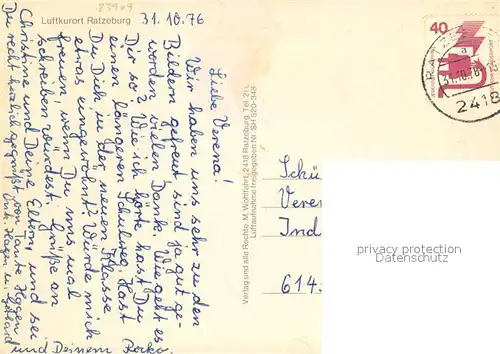 83909
Luftkurort Ratzeburg
31.10.76
Liebe Verena!
Wir haben uns sehr zu den
Bildern gefreut sind ja gut ge-
worden, vielen Dank. Wie geht es
Dir so? Wie ich hörte hast Du
einen längeren Schulweg. Hast
Du Dich, in der neuen Klasse
etwas eingewöhnt? Würde mich
freuen, wenn Du uns mal
schreiben würdest. Grüße an
Christine und Deine Eltern, und sei
Du recht herzlich gegrüßt von Tante
und Deinem
Verlag und alle Rechte: M. Wohlfahrt, 2418 Ratzeburg, Tel. 21
Luftaufnahme freigegeben Nr. SH 520-348
40
31.10.76
2418
Schü
Veren
Ind
614
privacy protection
Datenschutz